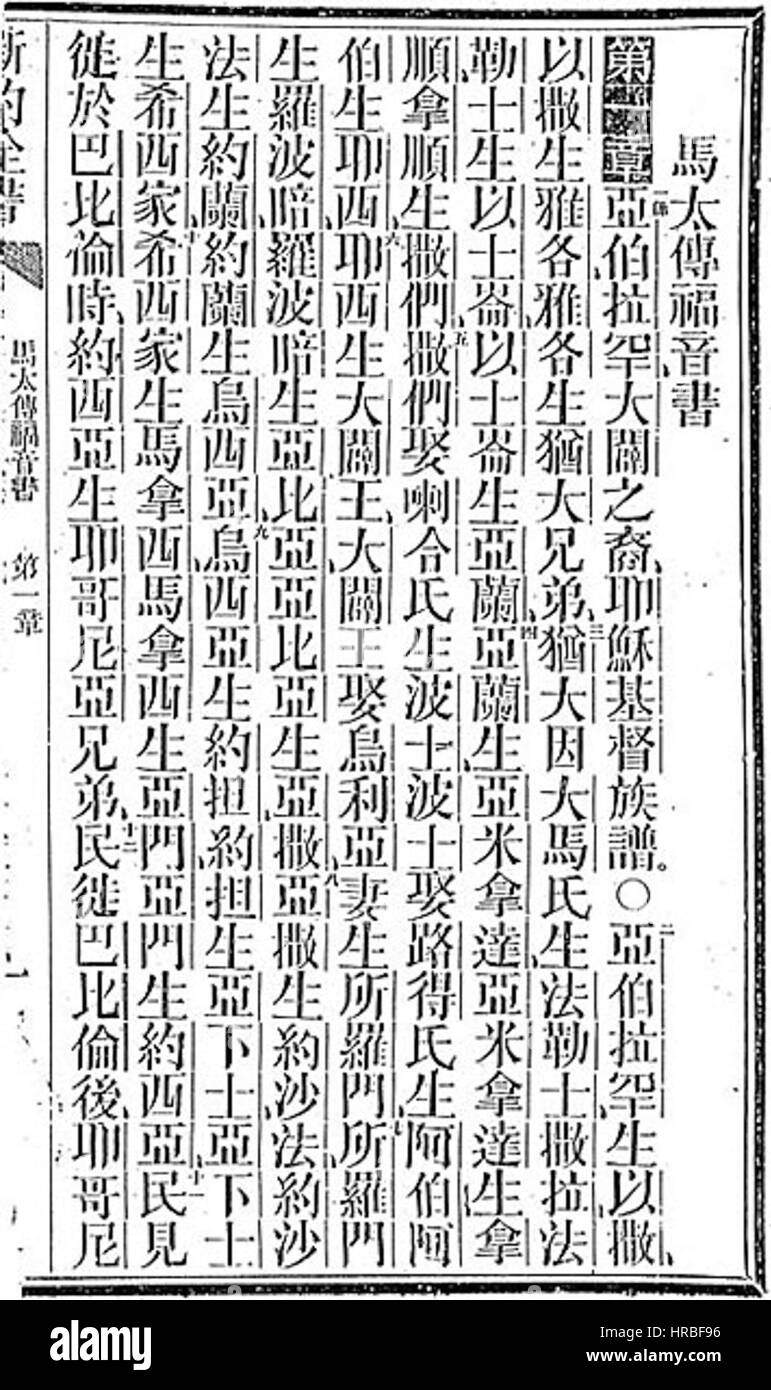 馬太傳福音書
第一章一亞伯拉罕大闢之裔、耶穌基督族譜。○二亞伯拉罕生以撒、
以撒生雅各雅各生猶大兄弟、三猶大因大馬氏生法勒士撒拉法
勒士生以士崙、以士崙生亞蘭、四亞蘭生亞米拿達、亞米拿達生拿
順、拿順生撒們、五撒們娶喇合氏生波士、波士娶路得氏生阿伯阿
伯生耶西、六耶西生大闢王、大闢王娶烏利亞妻生所羅門、七所羅門
生羅波暗、羅波暗生亞比亞亞比亞生亞撒、八亞撒生約沙法、約沙
法生約蘭、約蘭生烏西亞、九烏西亞生約担、約担生亞下士、亞下士
生希西家、十希西家生馬拿西、馬拿西生亞門亞門生約西亞、十一民見
徙於巴比倫時、約西亞生耶哥尼亞兄弟、十二民徙巴比倫後、耶哥尼
新約全書
馬太傳福音書 第一章
一
alamy
Image ID: HRBF96
www.alamy.com